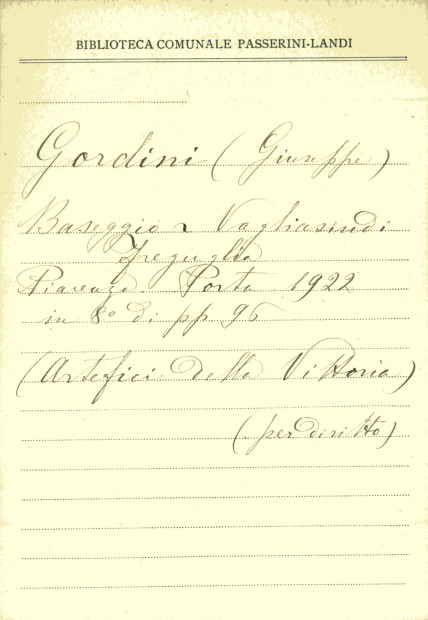 BIBLIOTECA COMUNALE PASSERINI-LANDI
Gordini (Giuseppe)
Baseggio e Vagliasindi
Freguglia
Piacenza Porta 1922
in 8º di pp 96
(Artefici della Vittoria)
(per diritto)